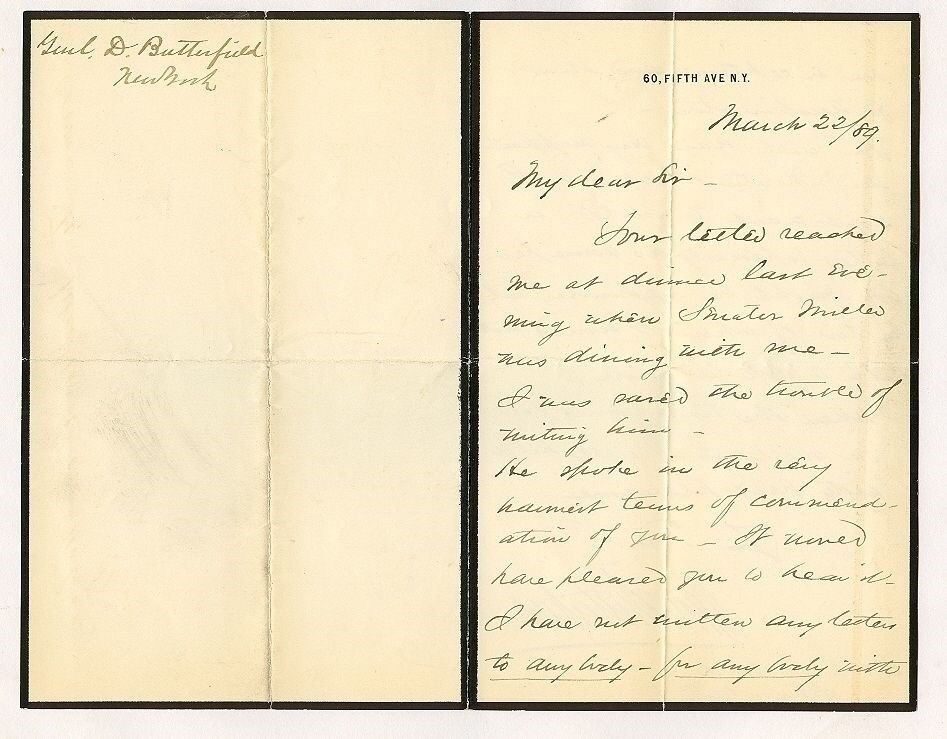 Genl. D. Butterfield
New York
60, FIFTH AVE N.Y.
March 22/89.
My dear Sir -
Your letter reached
me at dinner last eve-
ning when Senator Miller
was dining with me -
I was saved the trouble of
writing him -
He spoke in the very
warmest terms of commend-
ation of you - It would
have pleased you to hear it -
I have not written any letters
to any body - for any body with